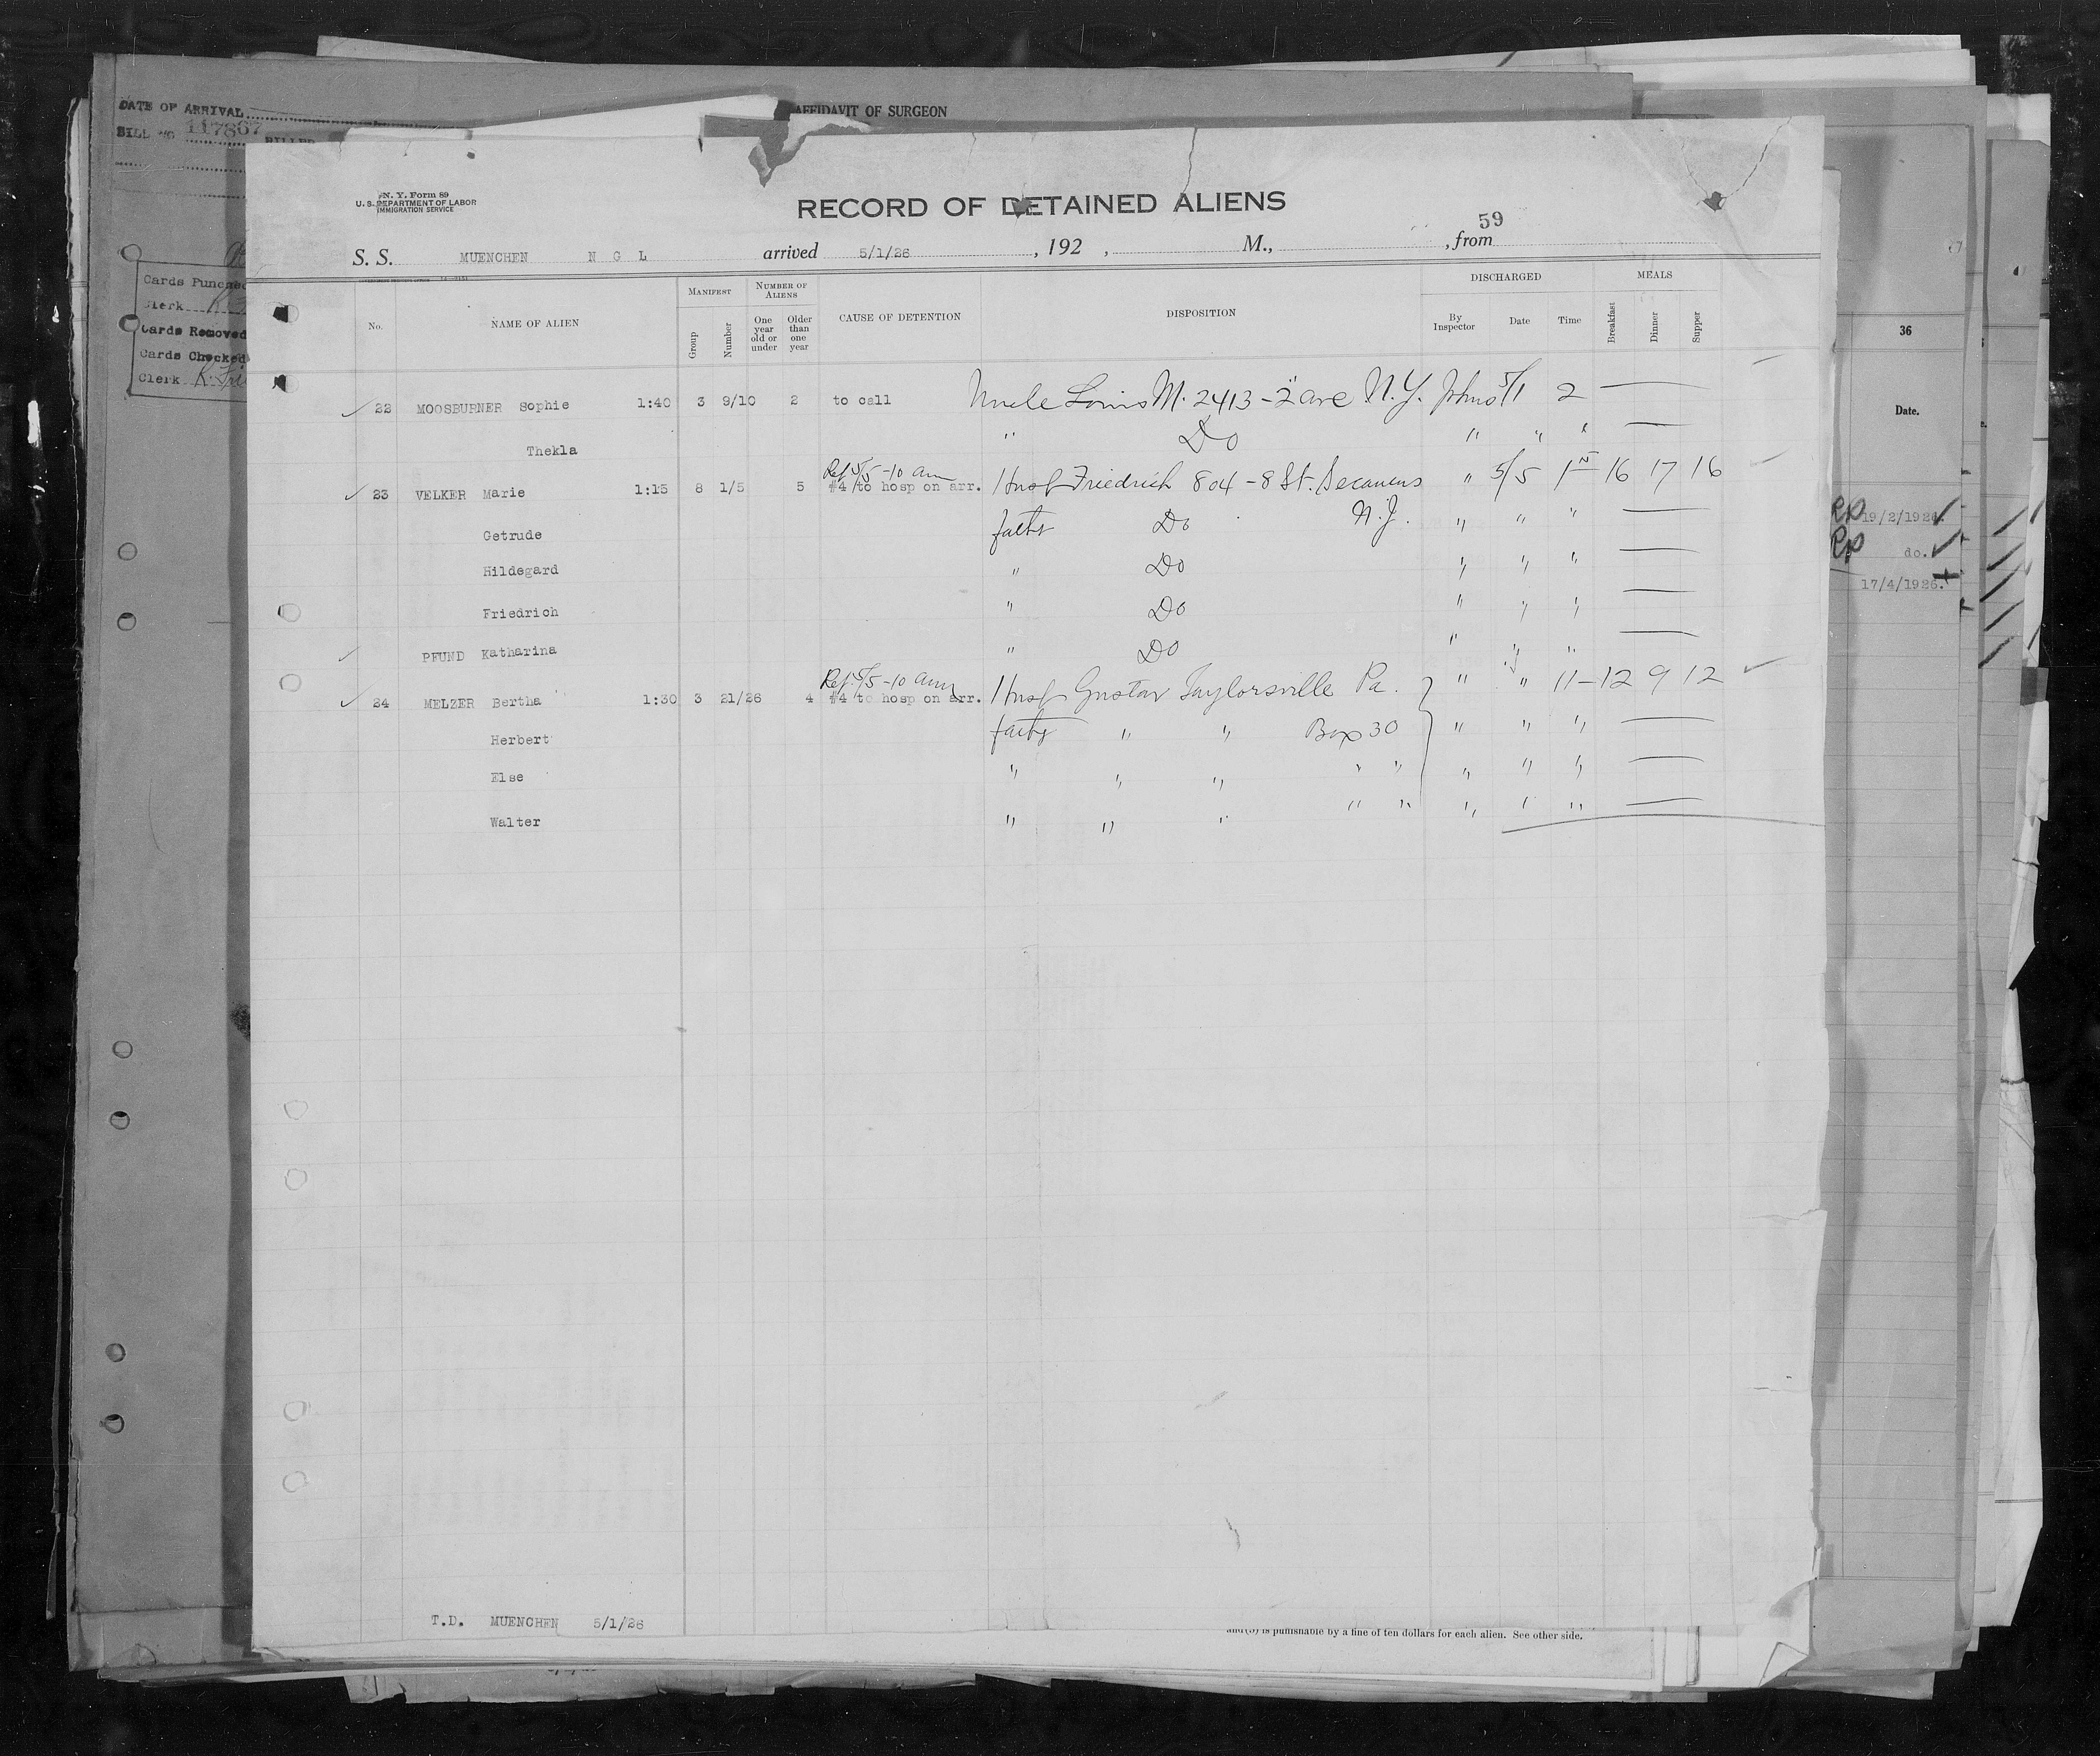 DATE OF ARRIVAL
AFFIDAVIT OF SURGEON
BILL NO 117867
N. Y. Form 89
U. S. DEPARTMENT OF LABOR
IMMIGRATION SERVICE
RECORD OF DETAINED ALIENS
59
S. S. MUENCHEN N G L arrived 5/1/26, 192 , M., , from
Cards Punched
Clerk
Cards Removed
Cards Checked
Clerk
No. NAME OF ALIEN MANIFEST Group Number NUMBER OF ALIENS One year old or under Older than one year CAUSE OF DETENTION DISPOSITION DISCHARGED By Inspector Date Time MEALS Breakfast Dinner Supper
36
Date.
22 MOOSBURNER Sophie 1:40 3 9/10 2 to call Uncle Louis M. 2413-2" ave N.Y. Johns 5/1 2 —
Thekla " Do " " " —
Ref 5/5 -10 am
23 VELKER Marie 1:15 8 1/5 5 #4 to hosp on arr. Husb Friedrich 804-8 St. Secaucus " 5/5 1 16 17 16
Getrude father Do N.J. " " " —
Hildegard " Do " " " —
Friedrich " Do " " " —
PFUND Katharina " Do " " "
Ref 5/5 -10 am
24 MELZER Bertha 1:30 3 21/26 4 #4 to hosp on arr. Husb Gustav Taylorsville Pa. " " 11- 12 9 12
Herbert father " " Box 30 " " " —
Else " " " " " " " " —
Walter " " " " " " " " —
19/2/1926.
do.
17/4/1926.
T.D. MUENCHEN 5/1/26
is punishable by a fine of ten dollars for each alien. See other side.